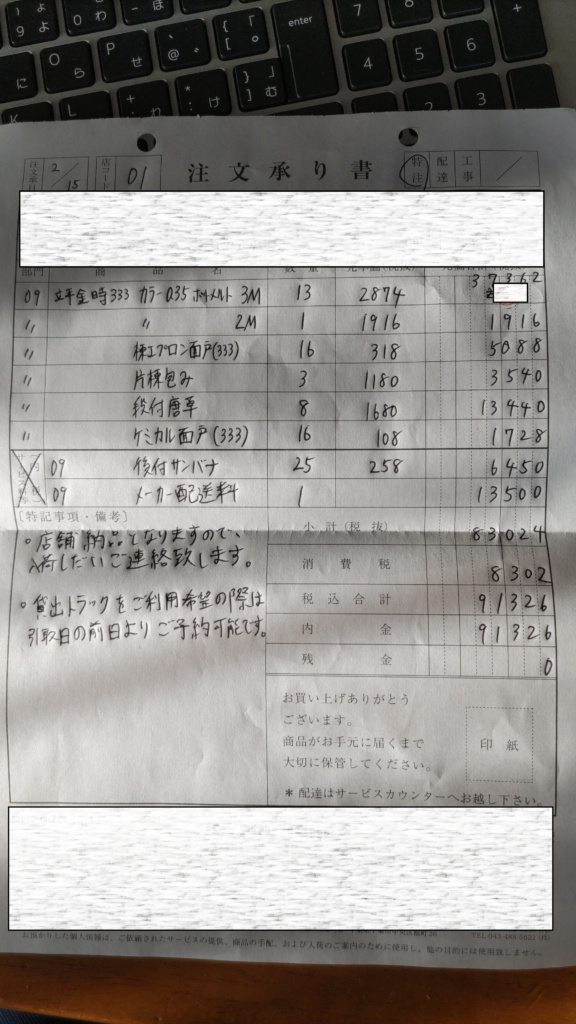 注文承り書
2/15
店コード 01
特注 配達 工事
部門 商品名 数量
09 立平金時333 カラー0.35 ホットメルト 3M 13 2874 37362
〃 〃 2M 1 1916 1916
〃 棟エプロン面戸(333) 16 318 5088
〃 片棟包み 3 1180 3540
〃 段付唐草 8 1680 13440
〃 ケミカル面戸(333) 16 108 1728
09 後付サンバナ 25 258 6450
09 メーカー配送料 1 13500
〔特記事項・備考〕
。店舗納品となりますので、
入荷しだいご連絡致します。
。貸出トラックをご利用希望の際は
引取日の前日よりご予約可能です。
小計(税抜) 83024
消費税 8302
税込合計 91326
内金 91326
残金 0
お買い上げありがとう
ございます。
商品がお手元に届くまで
大切に保管してください。
印紙
＊配達はサービスカウンターへお越し下さい。
お預かりした個人情報は、ご依頼されたサービスの提供、商品の手配、および入荷のご案内のために使用し、他の目的には使用致しません。
enter